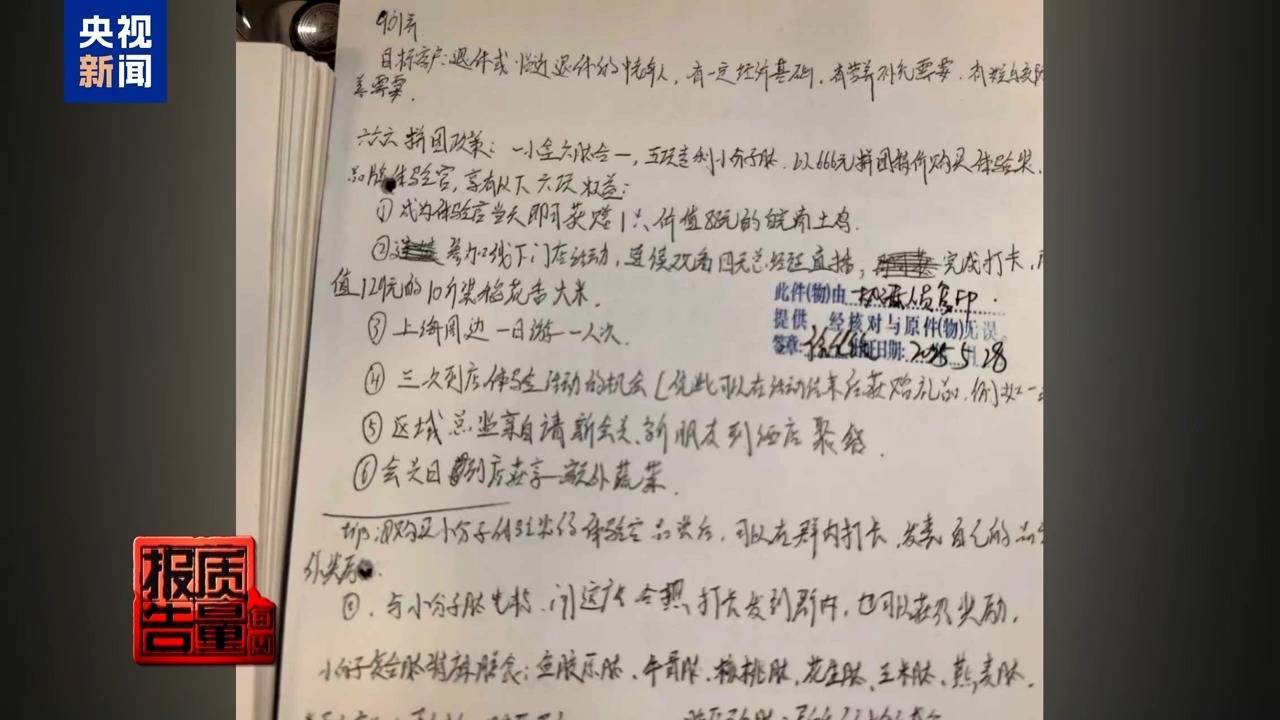 央视
新闻
目标客户:退休或临近退休的中老年人,有一定经济基础,有营养补充需要,有
养需要.
六六六拼团政策:一小盒六肽合一,五项专利小分子肽.以666元拼团特价购买体验装,
品牌体验官,享有以下六项权益:
①成为体验官当天即可获赠1只价值88元的皖南土鸡.
②参加线下门店活动,连续观看四天总经理直播,完成打卡,
值129元的10斤装稻花香大米.
③上海周边一日游一人次.
④三次到店体验活动的机会(凭此可以在活动结束后获赠礼品,例如一
⑤区域总监亲自请新会员、新朋友到酒店聚餐.
⑥会员日到店尊享一额外蔬菜.
此件(物)由
提供,经核对与原件(物)无误
签章: 日期:2025.5.28
购买小分子体验装得体验官品尝后,可以在群内打卡,发表自己的品
外奖励.
,与小分子肽 合照打卡发到群内,也可以 奖励.
小分子复合肽 膳食:鱼胶原肽、牛骨肽、核桃肽、花生肽、玉米肽、燕麦肽.
质量
报告
每周